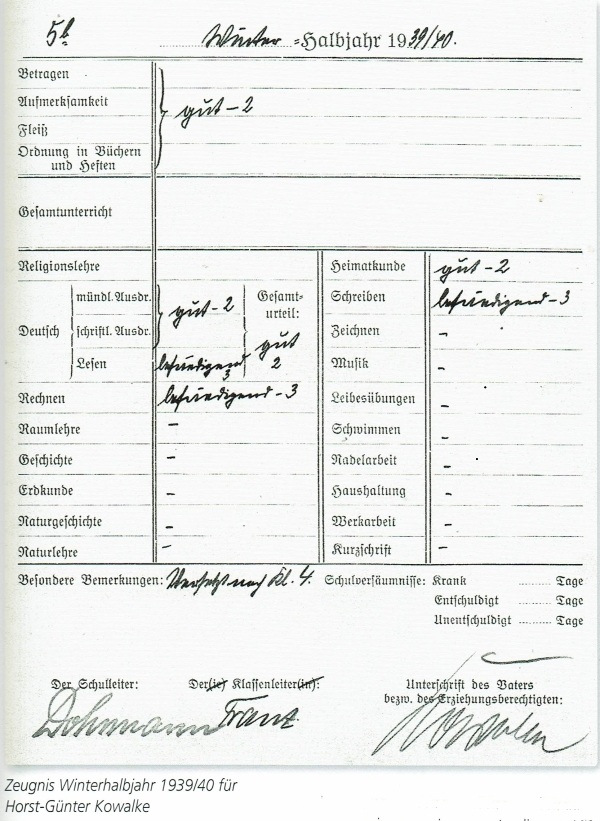 5b Winter-Halbjahr 1939/40.
Betragen
Aufmerksamkeit
gut - 2
Fleiß
Ordnung in Büchern
und Heften
Gesamtunterricht
Religionslehre
Deutsch
mündl. Ausdr.
schriftl. Ausdr.
gut - 2
Lesen
befriedigend
3
Gesamt-
urteil:
gut
2
Rechnen befriedigend - 3
Raumlehre -
Geschichte -
Erdkunde -
Naturgeschichte -
Naturlehre -
Heimatkunde gut - 2
Schreiben befriedigend - 3
Zeichnen -
Musik -
Leibesübungen -
Schwimmen -
Nadelarbeit -
Haushaltung -
Werkarbeit -
Kurzschrift -
Besondere Bemerkungen: Versetzt nach Kl. 4.
Schulversäumnisse: Krank ........ Tage
Entschuldigt ........ Tage
Unentschuldigt ........ Tage
Der Schulleiter:
Dohrmann
Der(ie) Klassenleiter(in):
Franz
Unterschrift des Vaters
bezw. des Erziehungsberechtigten:
Kowalke
Zeugnis Winterhalbjahr 1939/40 für
Horst-Günter Kowalke